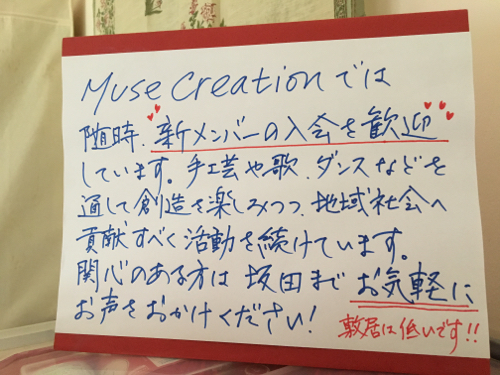 Muse Creationでは
随時、新メンバーの入会を歓迎
しています。手工芸や歌、ダンスなどを
通して創造を楽しみつつ、地域社会へ
貢献すべく活動を続けています。
関心のある方は坂田までお気軽に
お声をおかけください!
敷居は低いです!!